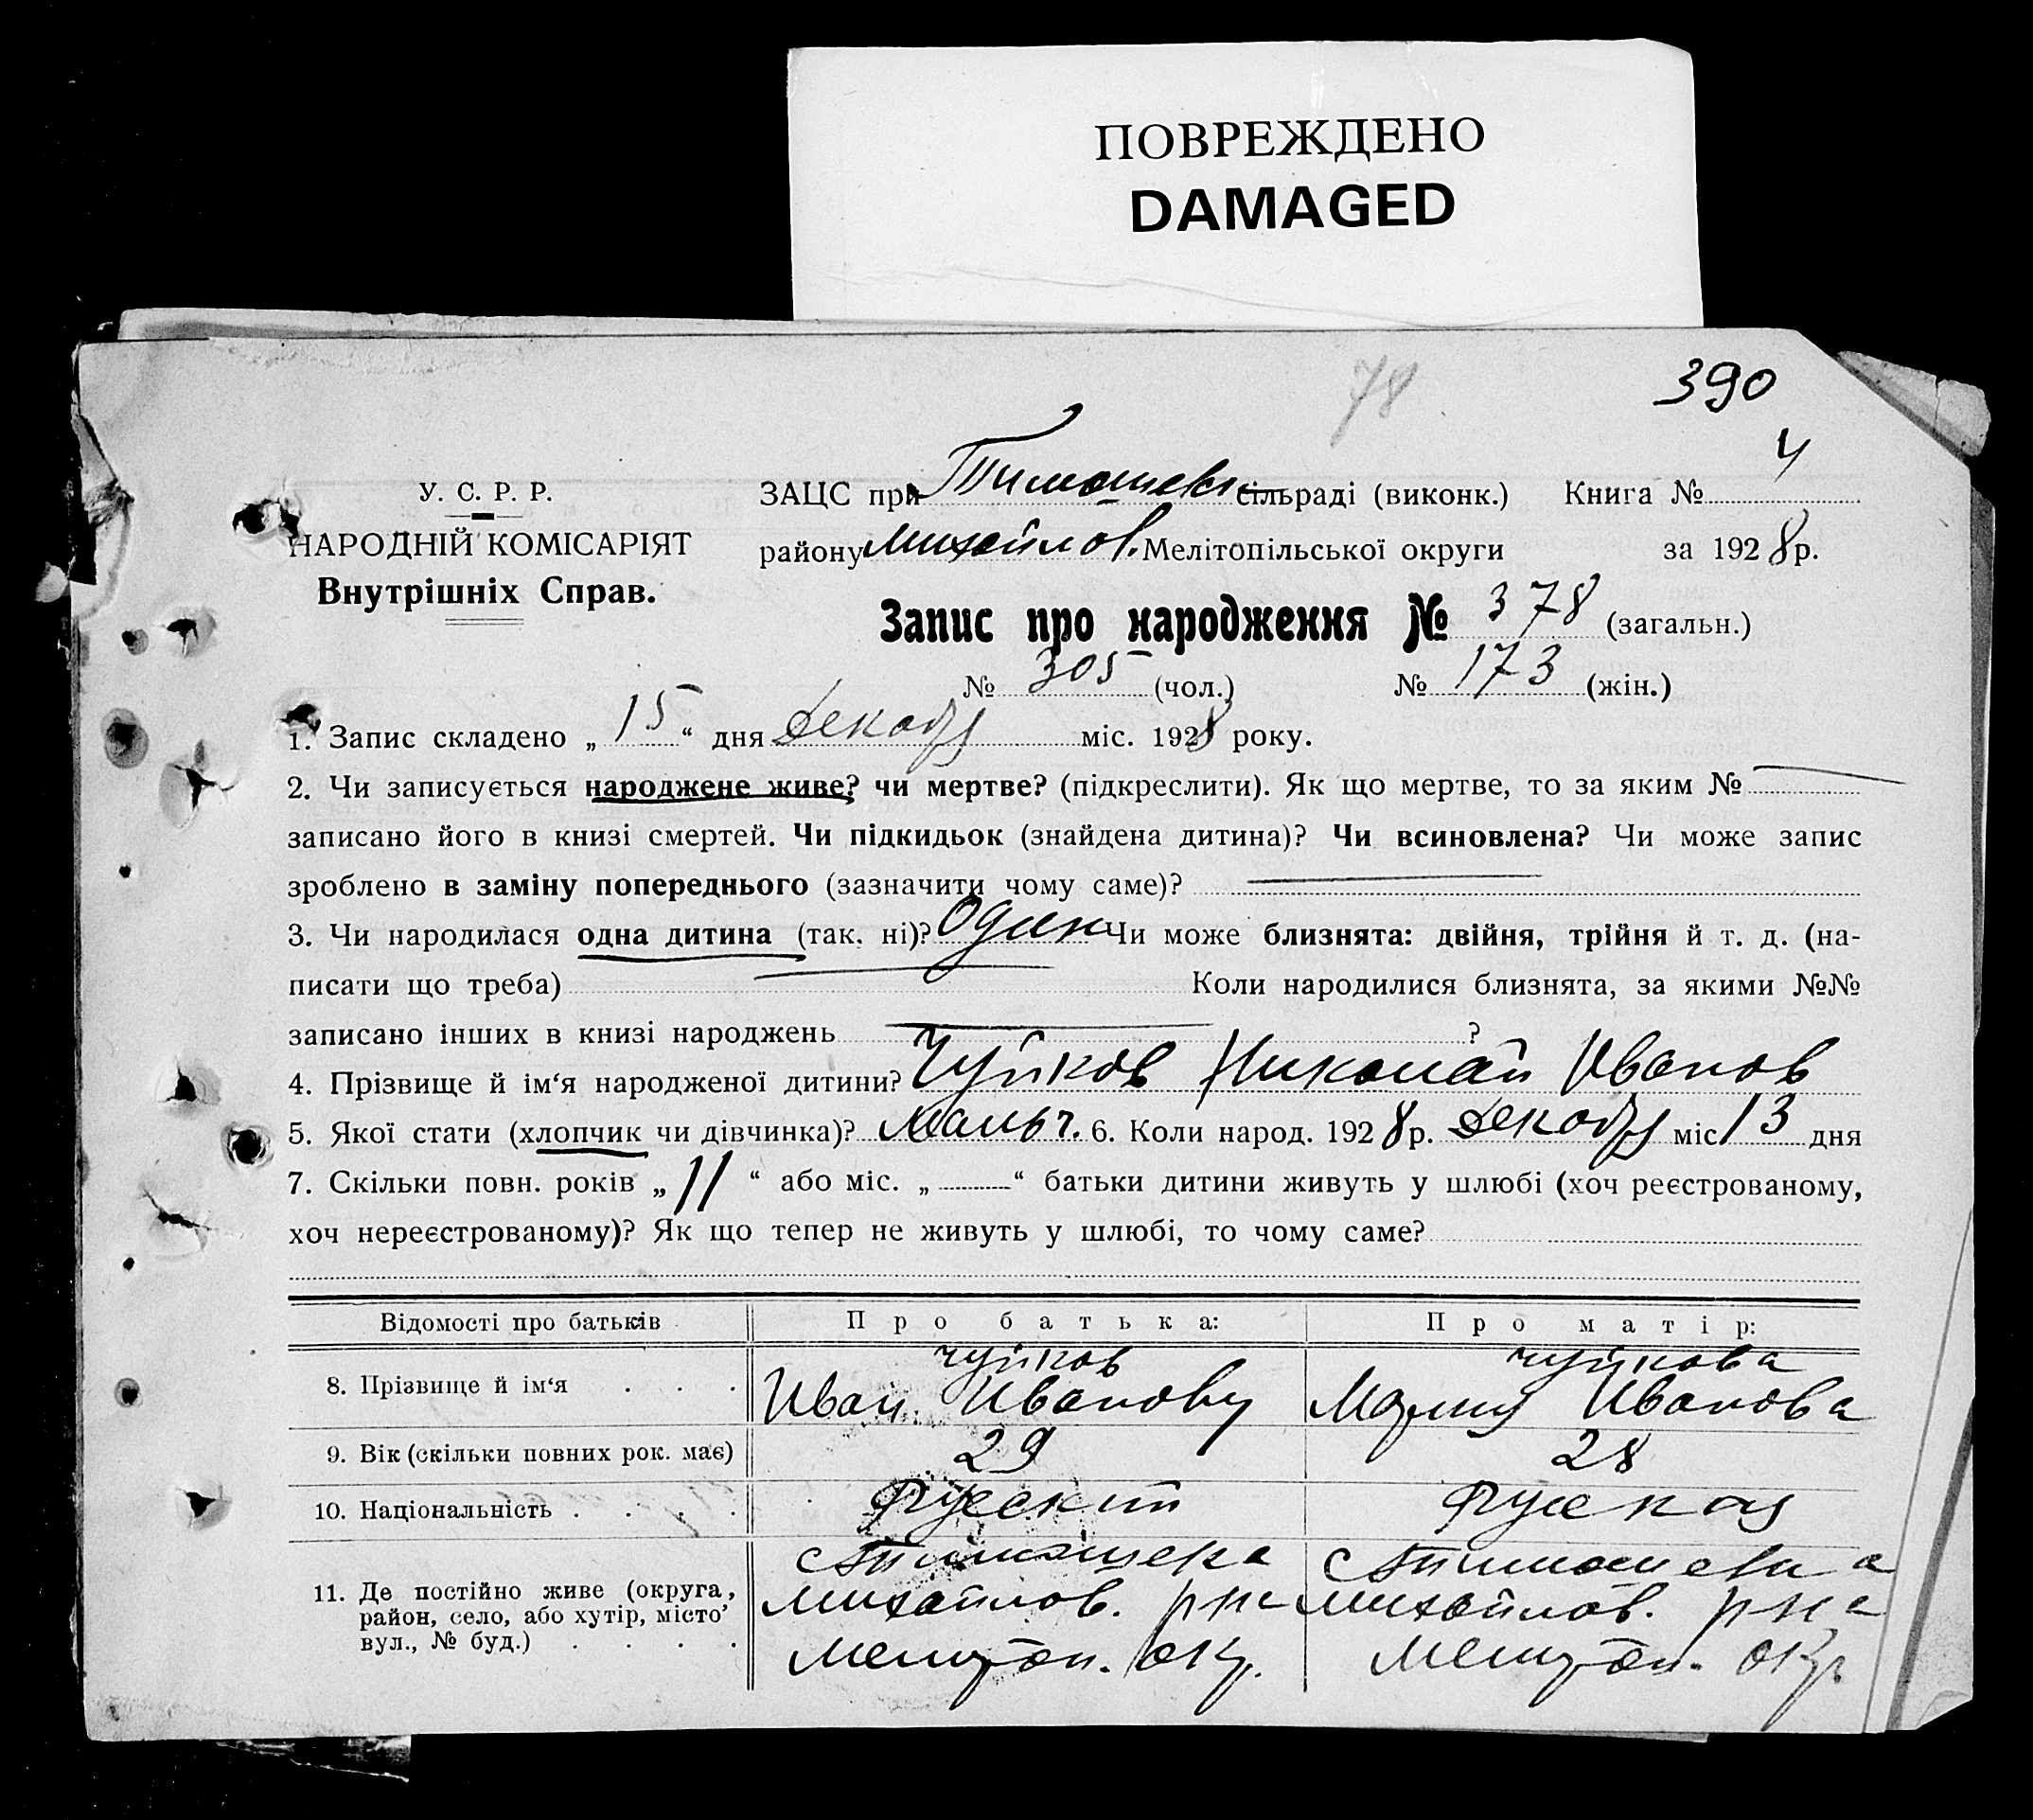 ПОВРЕЖДЕНО
DAMAGED
78
390
У. С. Р. Р.
НАРОДНІЙ КОМІСАРІЯТ
Внутрішніх Справ.
ЗАЦС при Тимошевк сільраді (виконк.) Книга № 4
району Михайлов. Мелітопільської округи за 1928 р.
Запис про народження № 378 (загальн.)
№ 305 (чол.) № 173 (жін.)
1. Запис складено „ 15 “ дня Декабря міс. 1928 року.
2. Чи записується народжене живе? чи мертве? (підкреслити). Як що мертве, то за яким №
записано його в книзі смертей. Чи підкидьок (знайдена дитина)? Чи всиновлена? Чи може запис
зроблено в заміну попереднього (зазначити чому саме)?
3. Чи народилася одна дитина (так, ні)? Один Чи може близнята: двійня, трійня й т. д. (на-
писати що треба) Коли народилися близнята, за якими №№
записано інших в книзі народжень ?
4. Прізвище й ім‘я народженої дитини? Чуйков Николай Иванов
5. Якої стати (хлопчик чи дівчинка)? Мальч. 6. Коли народ. 1928 р. Декабря міс 13 дня
7. Скільки повн. років „ 11 “ або міс. „ “ батьки дитини живуть у шлюбі (хоч реєстрованому,
хоч нереєстрованому)? Як що тепер не живуть у шлюбі, то чому саме?
Відомості про батьків Про батька: Про матір:
чуйков чуйкова
8. Прізвище й ім‘я . . . Иван Иванову Мария Иванова
9. Вік (скільки повних рок. має) 29 28
10. Національність . . . . Русский Руская
11. Де постійно живе (округа, с Тимошевка с Тимошевка
район, село, або хутір, місто, Михайлов. р-на Михайлов. р-на
вул., № буд.) . . . . Мелитоп. окр. Мелитоп. окр.